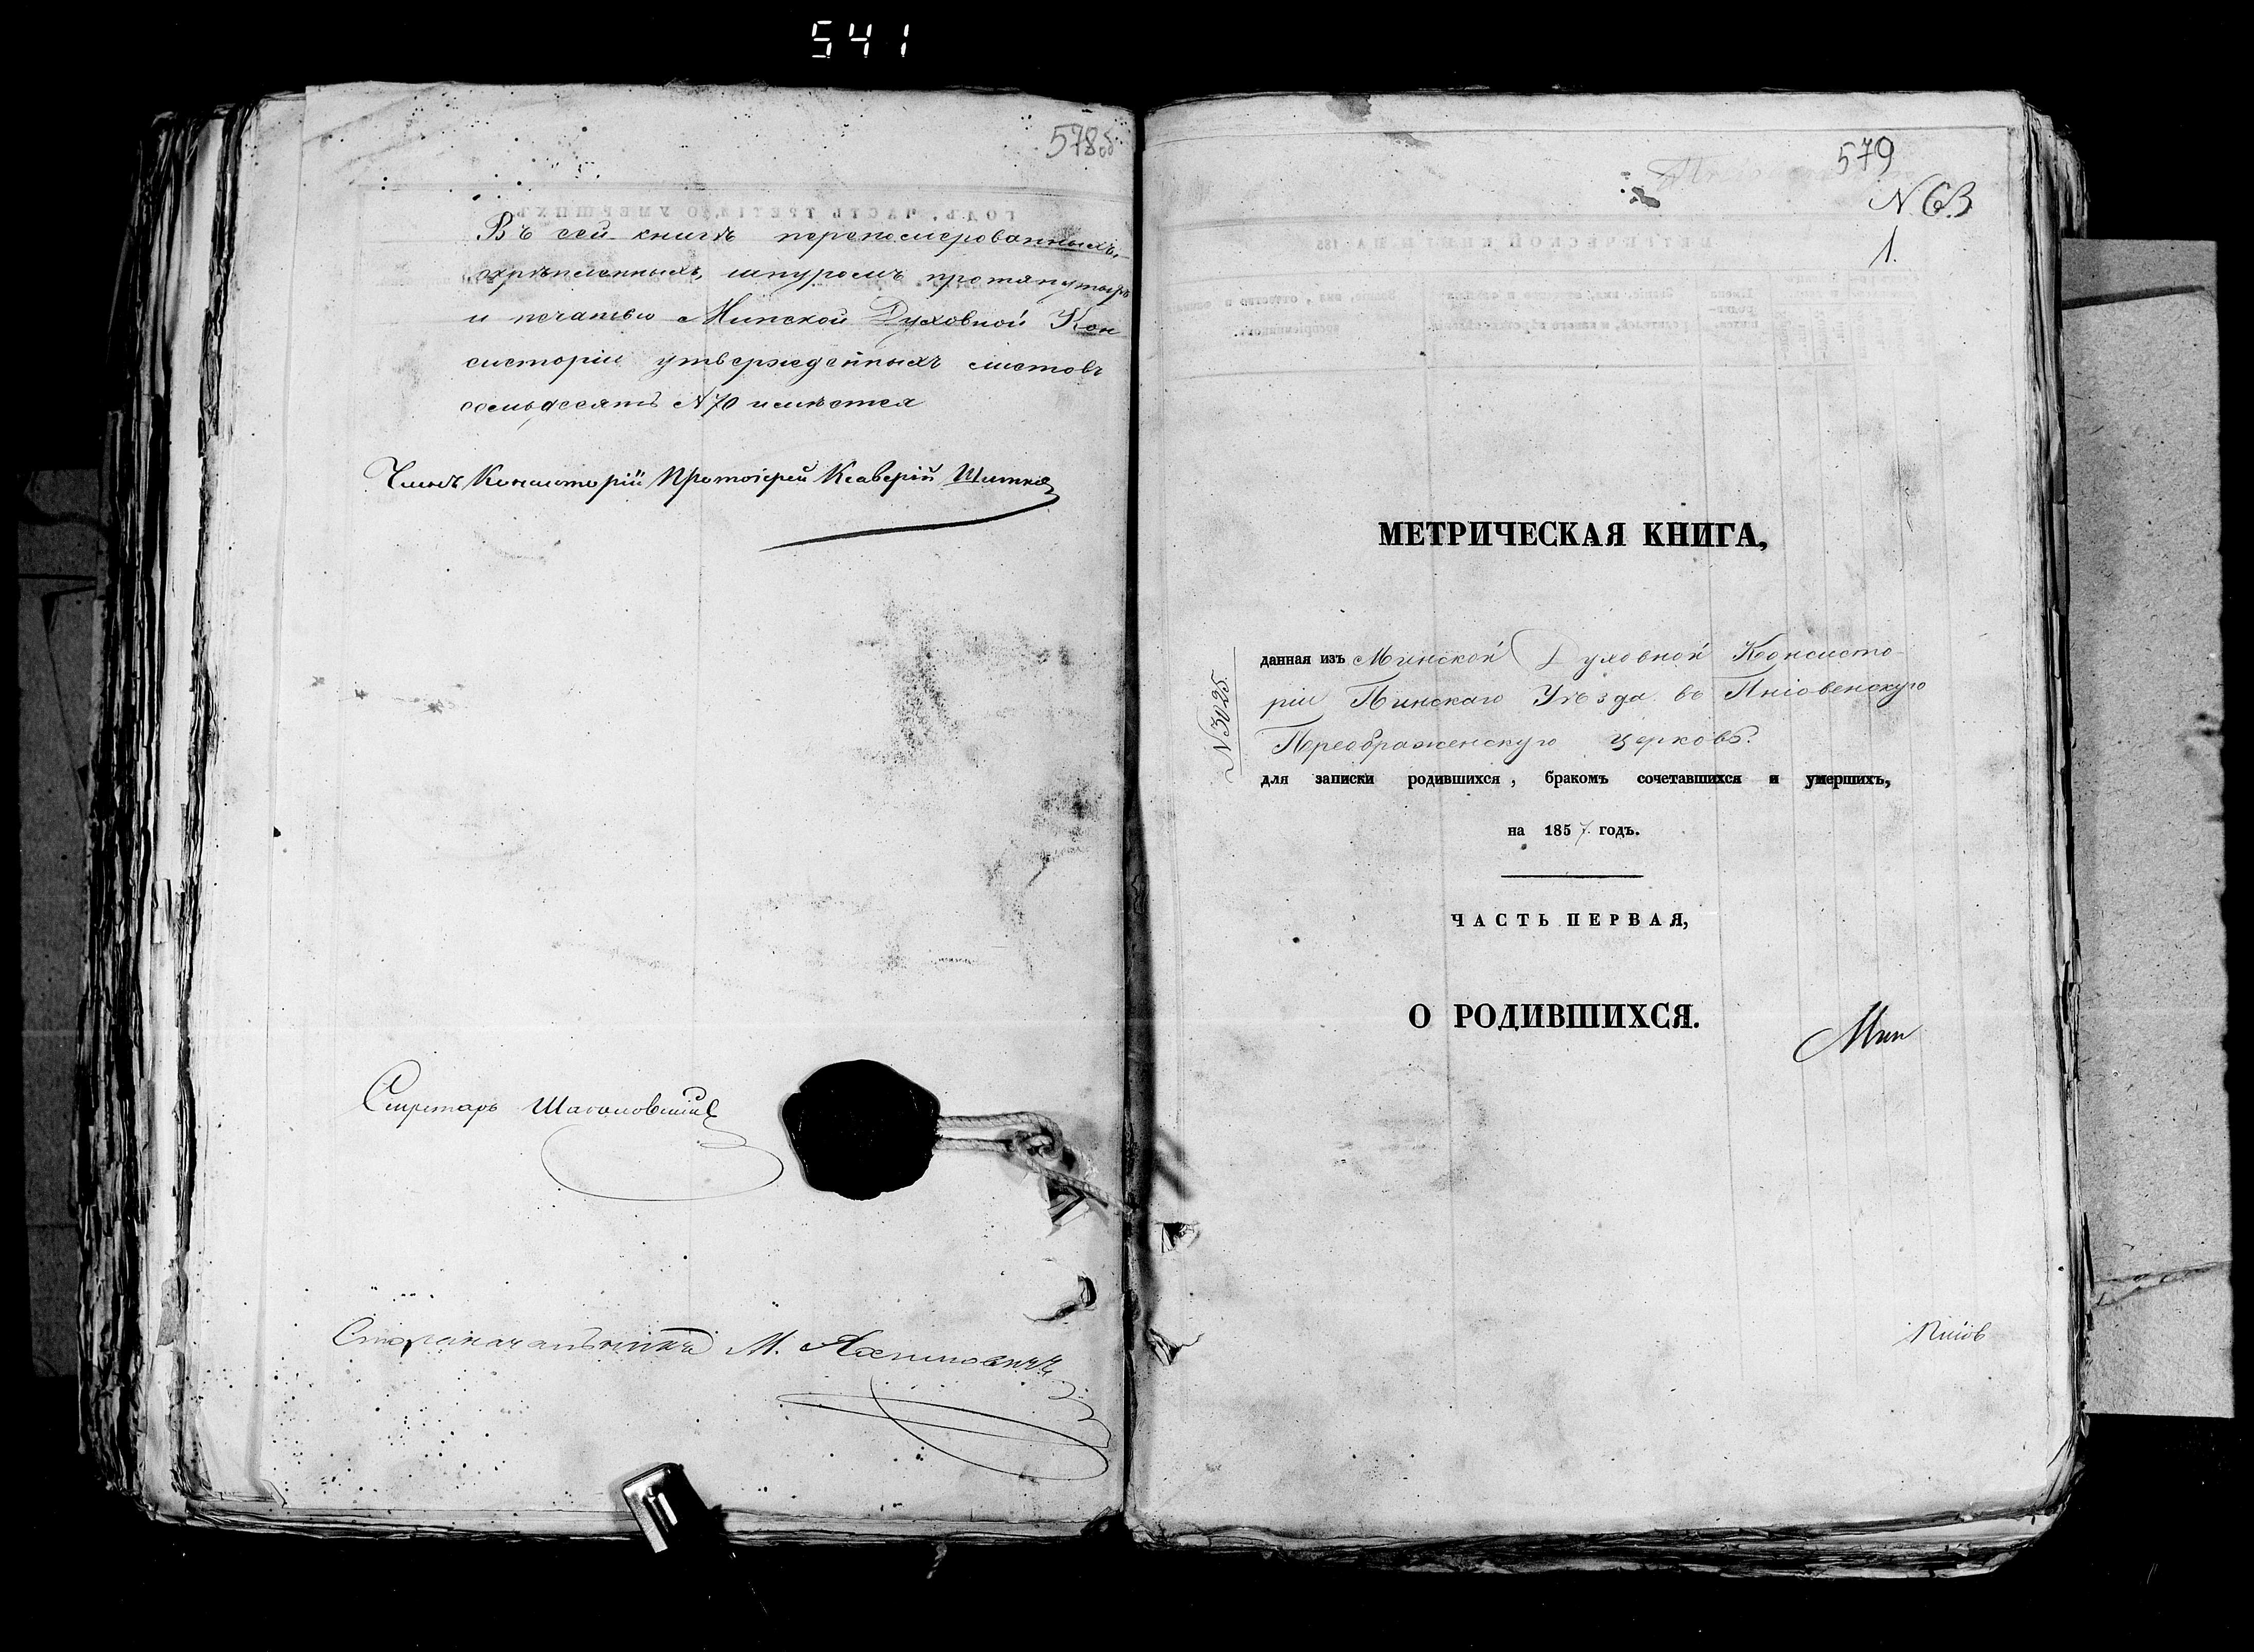 541
578об
Въ сей книгѣ переномерованныхъ,
скрѣпленныхъ, шнуромъ протянутыхъ
и печатью Минской Духовной Кон
систоріи утвержденныхъ листовъ
семьдесятъ №70 имѣется
Членъ Консисторіи Протоіерей Ксаверій
Секретарь
Столоначальникъ М.
579
N. 63
1.
МЕТРИЧЕСКАЯ КНИГА,
данная изъ Минской Духовной Консисто-
ріи Пинскаго Уѣзда въ Пніовенскую
Преображенскую церковь.
N 3025.
для записки родившихся, бракомъ сочетавшихся и умершихъ,
на 1857 годъ.
ЧАСТЬ ПЕРВАЯ,
О РОДИВШИХСЯ.
Мин
Пніов